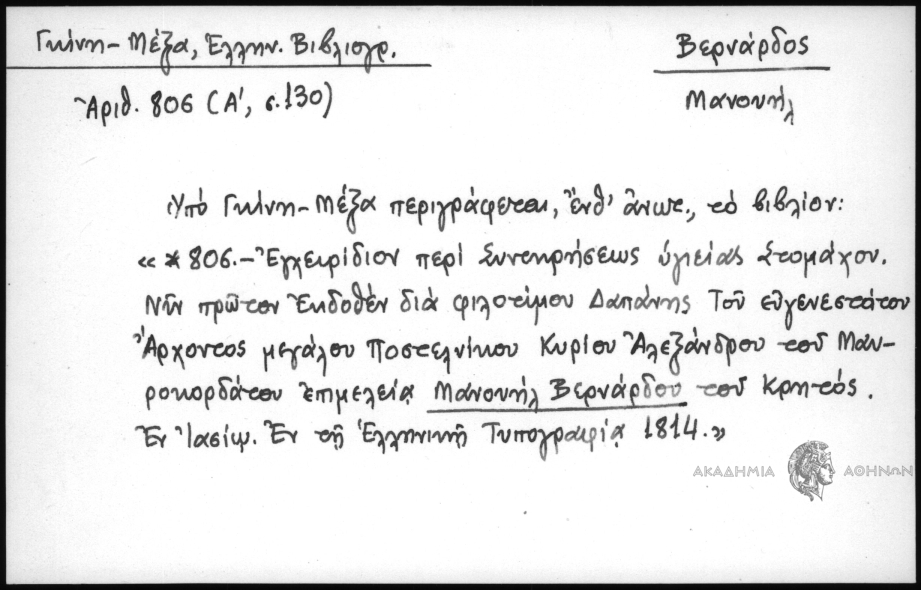 Γκίνη-Μέξα, Ἑλλην. Βιβλιογρ.
Ἀριθ. 806 (Α΄, σ.130)
Βερνάρδος
Μανουήλ
Ὑπό Γκίνη-Μέξα περιγράφεται, ἔνθ' ἄνωτ., τό βιβλίον:
«*806.-Ἐγχειρίδιον περί Συντηρήσεως ὑγιείας Στομάχου.
Νῦν πρῶτον Ἐκδοθέν διά φιλοτίμου Δαπάνης Τοῦ εὐγενεστάτου
Ἄρχοντος μεγάλου Ποστελνίκου Κυρίου Ἀλεξάνδρου τοῦ Μαυ-
ροκορδάτου ἐπιμελείᾳ Μανουήλ Βερνάρδου τοῦ Κρητός.
Ἐν Ἰασίῳ. Ἐν τῇ Ἑλληνικῇ Τυπογραφίᾳ 1814.»
ΑΚΑΔΗΜΙΑ ΑΘΗΝΩΝ